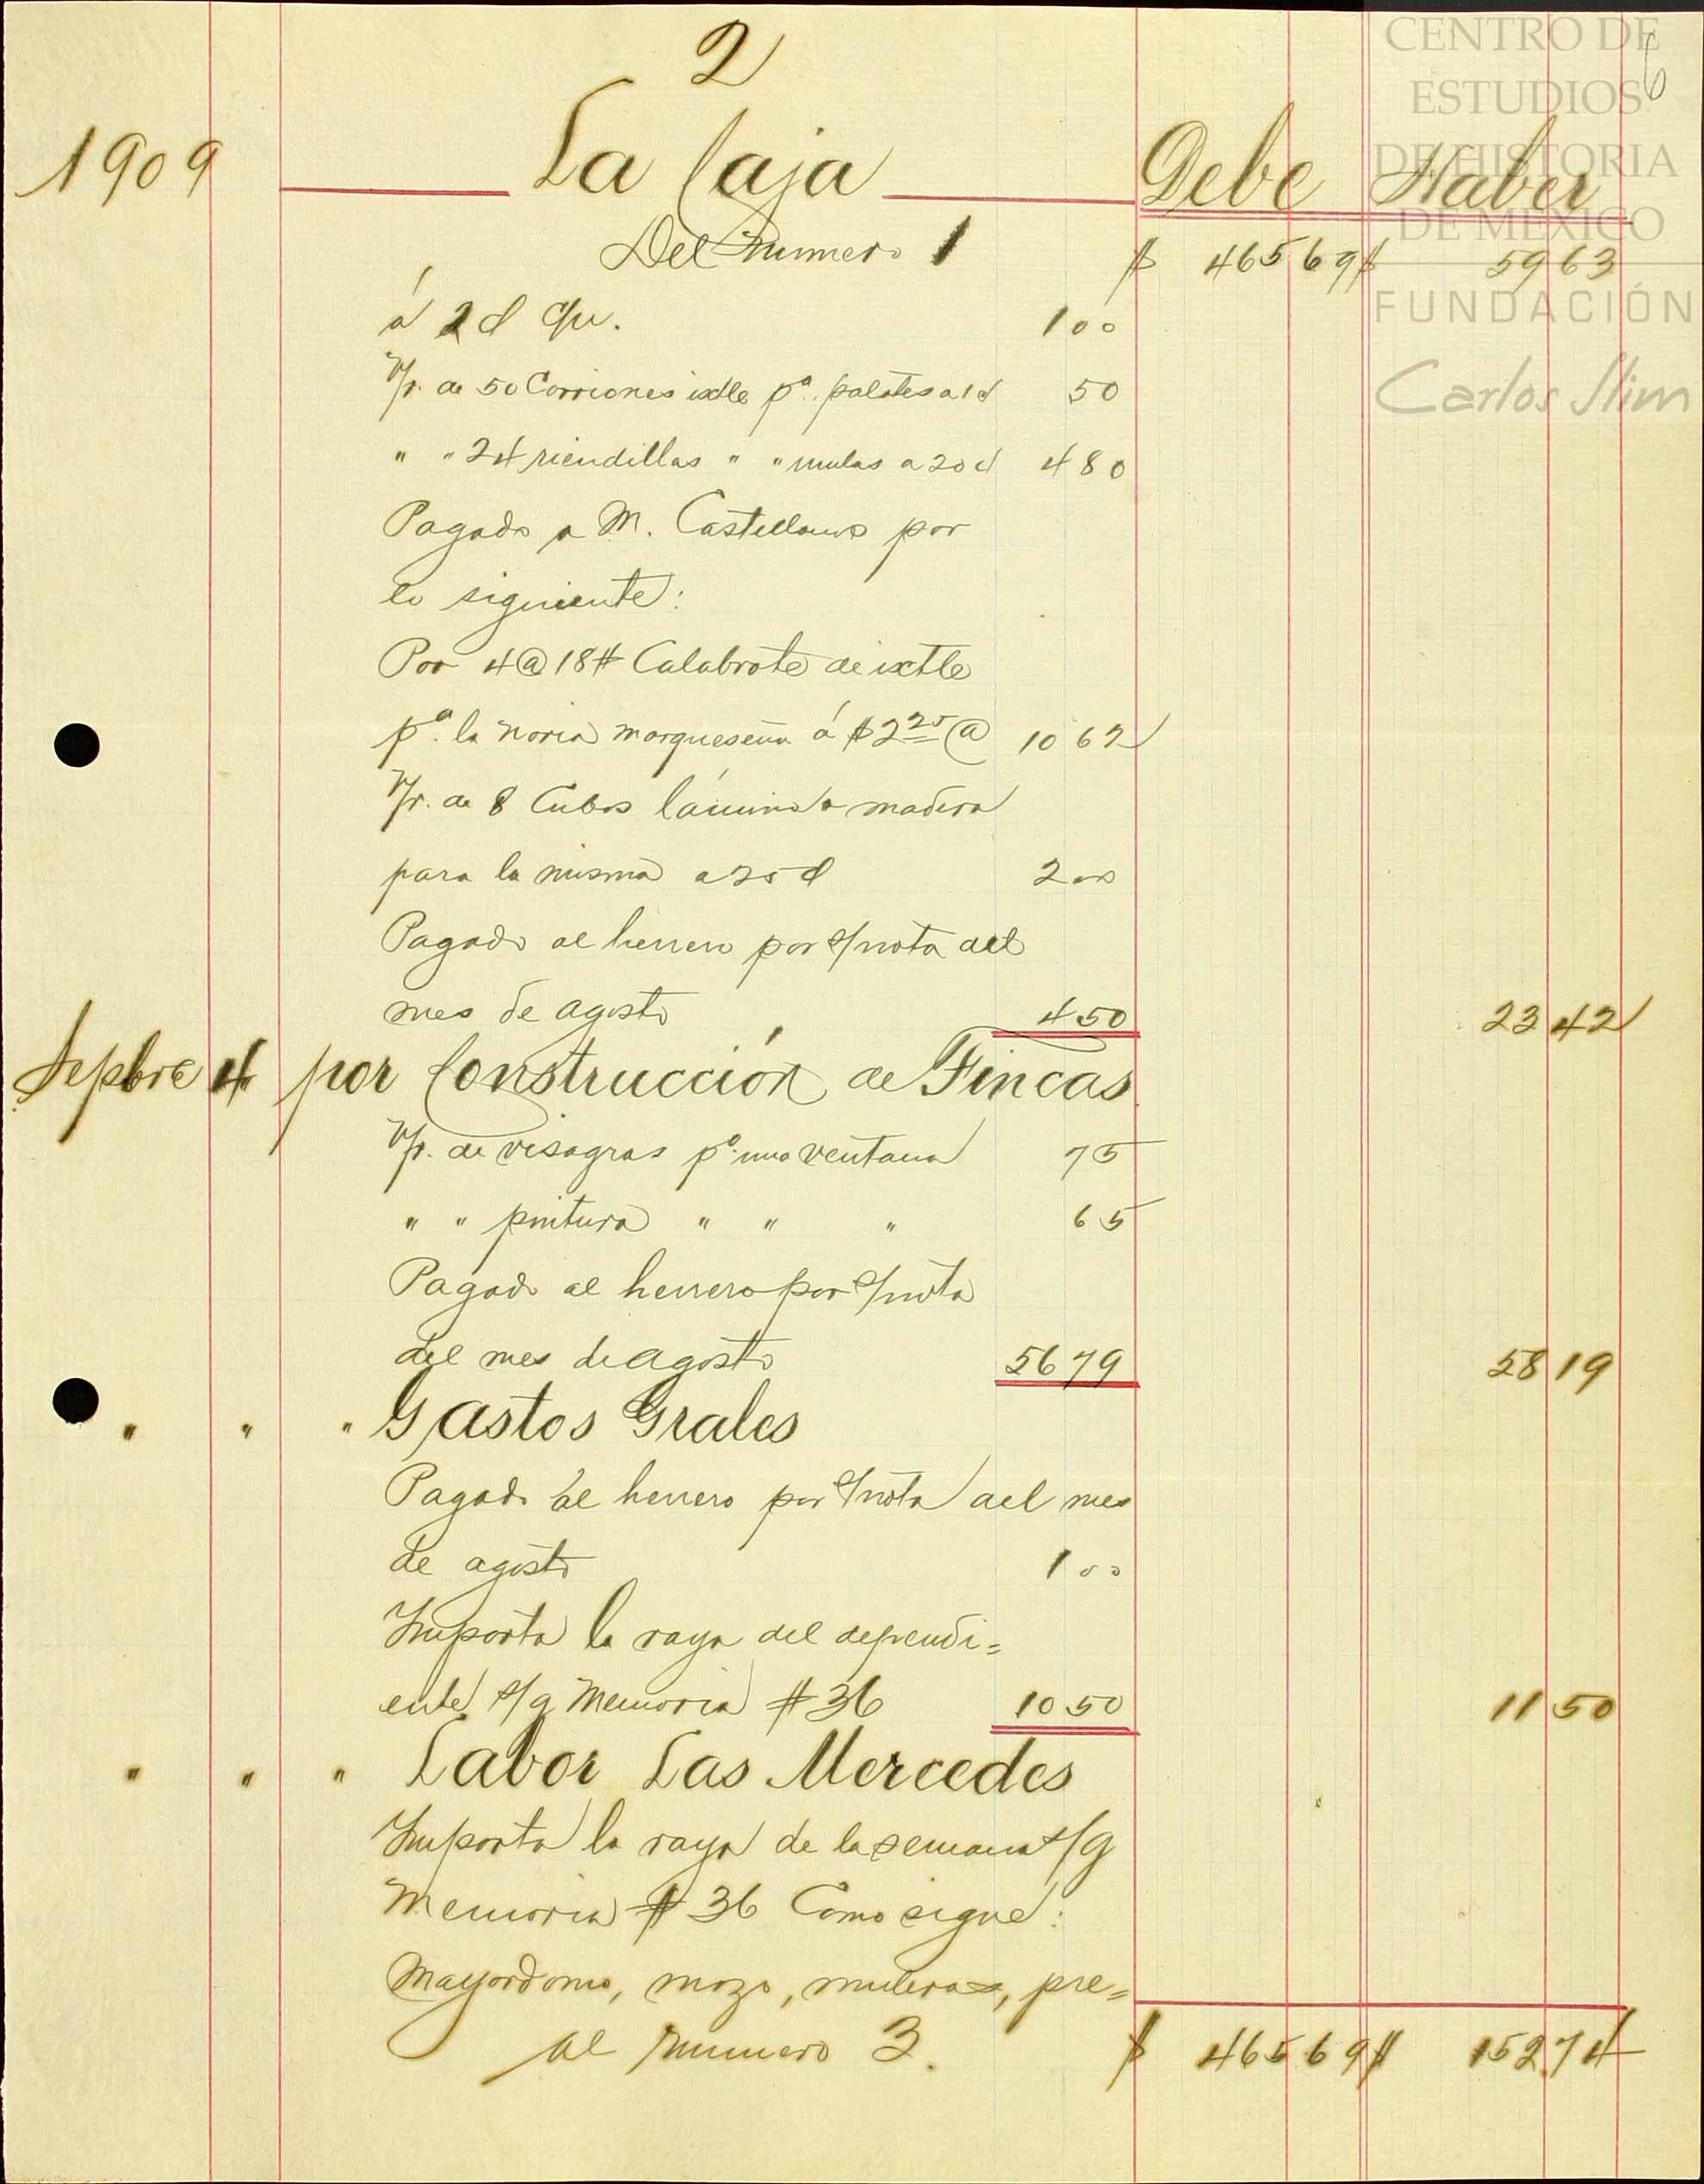 2
CENTRO DE
ESTUDIOS
DE HISTORIA
DE MEXICO
FUNDACIÓN
Carlos Slim
1909 La Caja Debe Haber
Del numero 1 $ 465 69 $ 59 63
á 2 ¢ c/u. 1 00
V/r. de 50 Corriones ixtle pª. palotes a 1 ¢ 50
" " 24 riendillas " " mulas a 20 ¢ 4 80
Pagado a M. Castellanos por
lo siguiente:
Por 4 @ 18 # Calabrote de ixtle
pª. la noria marqueseña á $2 25 @ 10 62
V/r. de 8 Cubos lámina o madera
para la misma a 25 ¢ 2 00
Pagado al herrero por s/nota del
mes de agosto 4 50 23 42
Sepbre 4 por Construcción de Fincas
V/r. de visagras pª. una ventana 75
" " pintura " " " 65
Pagado al herrero por s/nota
del mes de agosto 56 79 58 19
" " " Gastos Grales
Pagado al herrero por s/nota del mes
de agosto 1 00
Importa la raya del dependi=
ente s/g Memoria # 36 10 50 11 50
" " " Labor Las Mercedes
Importa la raya de la semana s/g
Memoria # 36 Como sigue:
Mayordomo, mozo, muleros, pre=
al numero 3. $ 465 69 $ 152 74